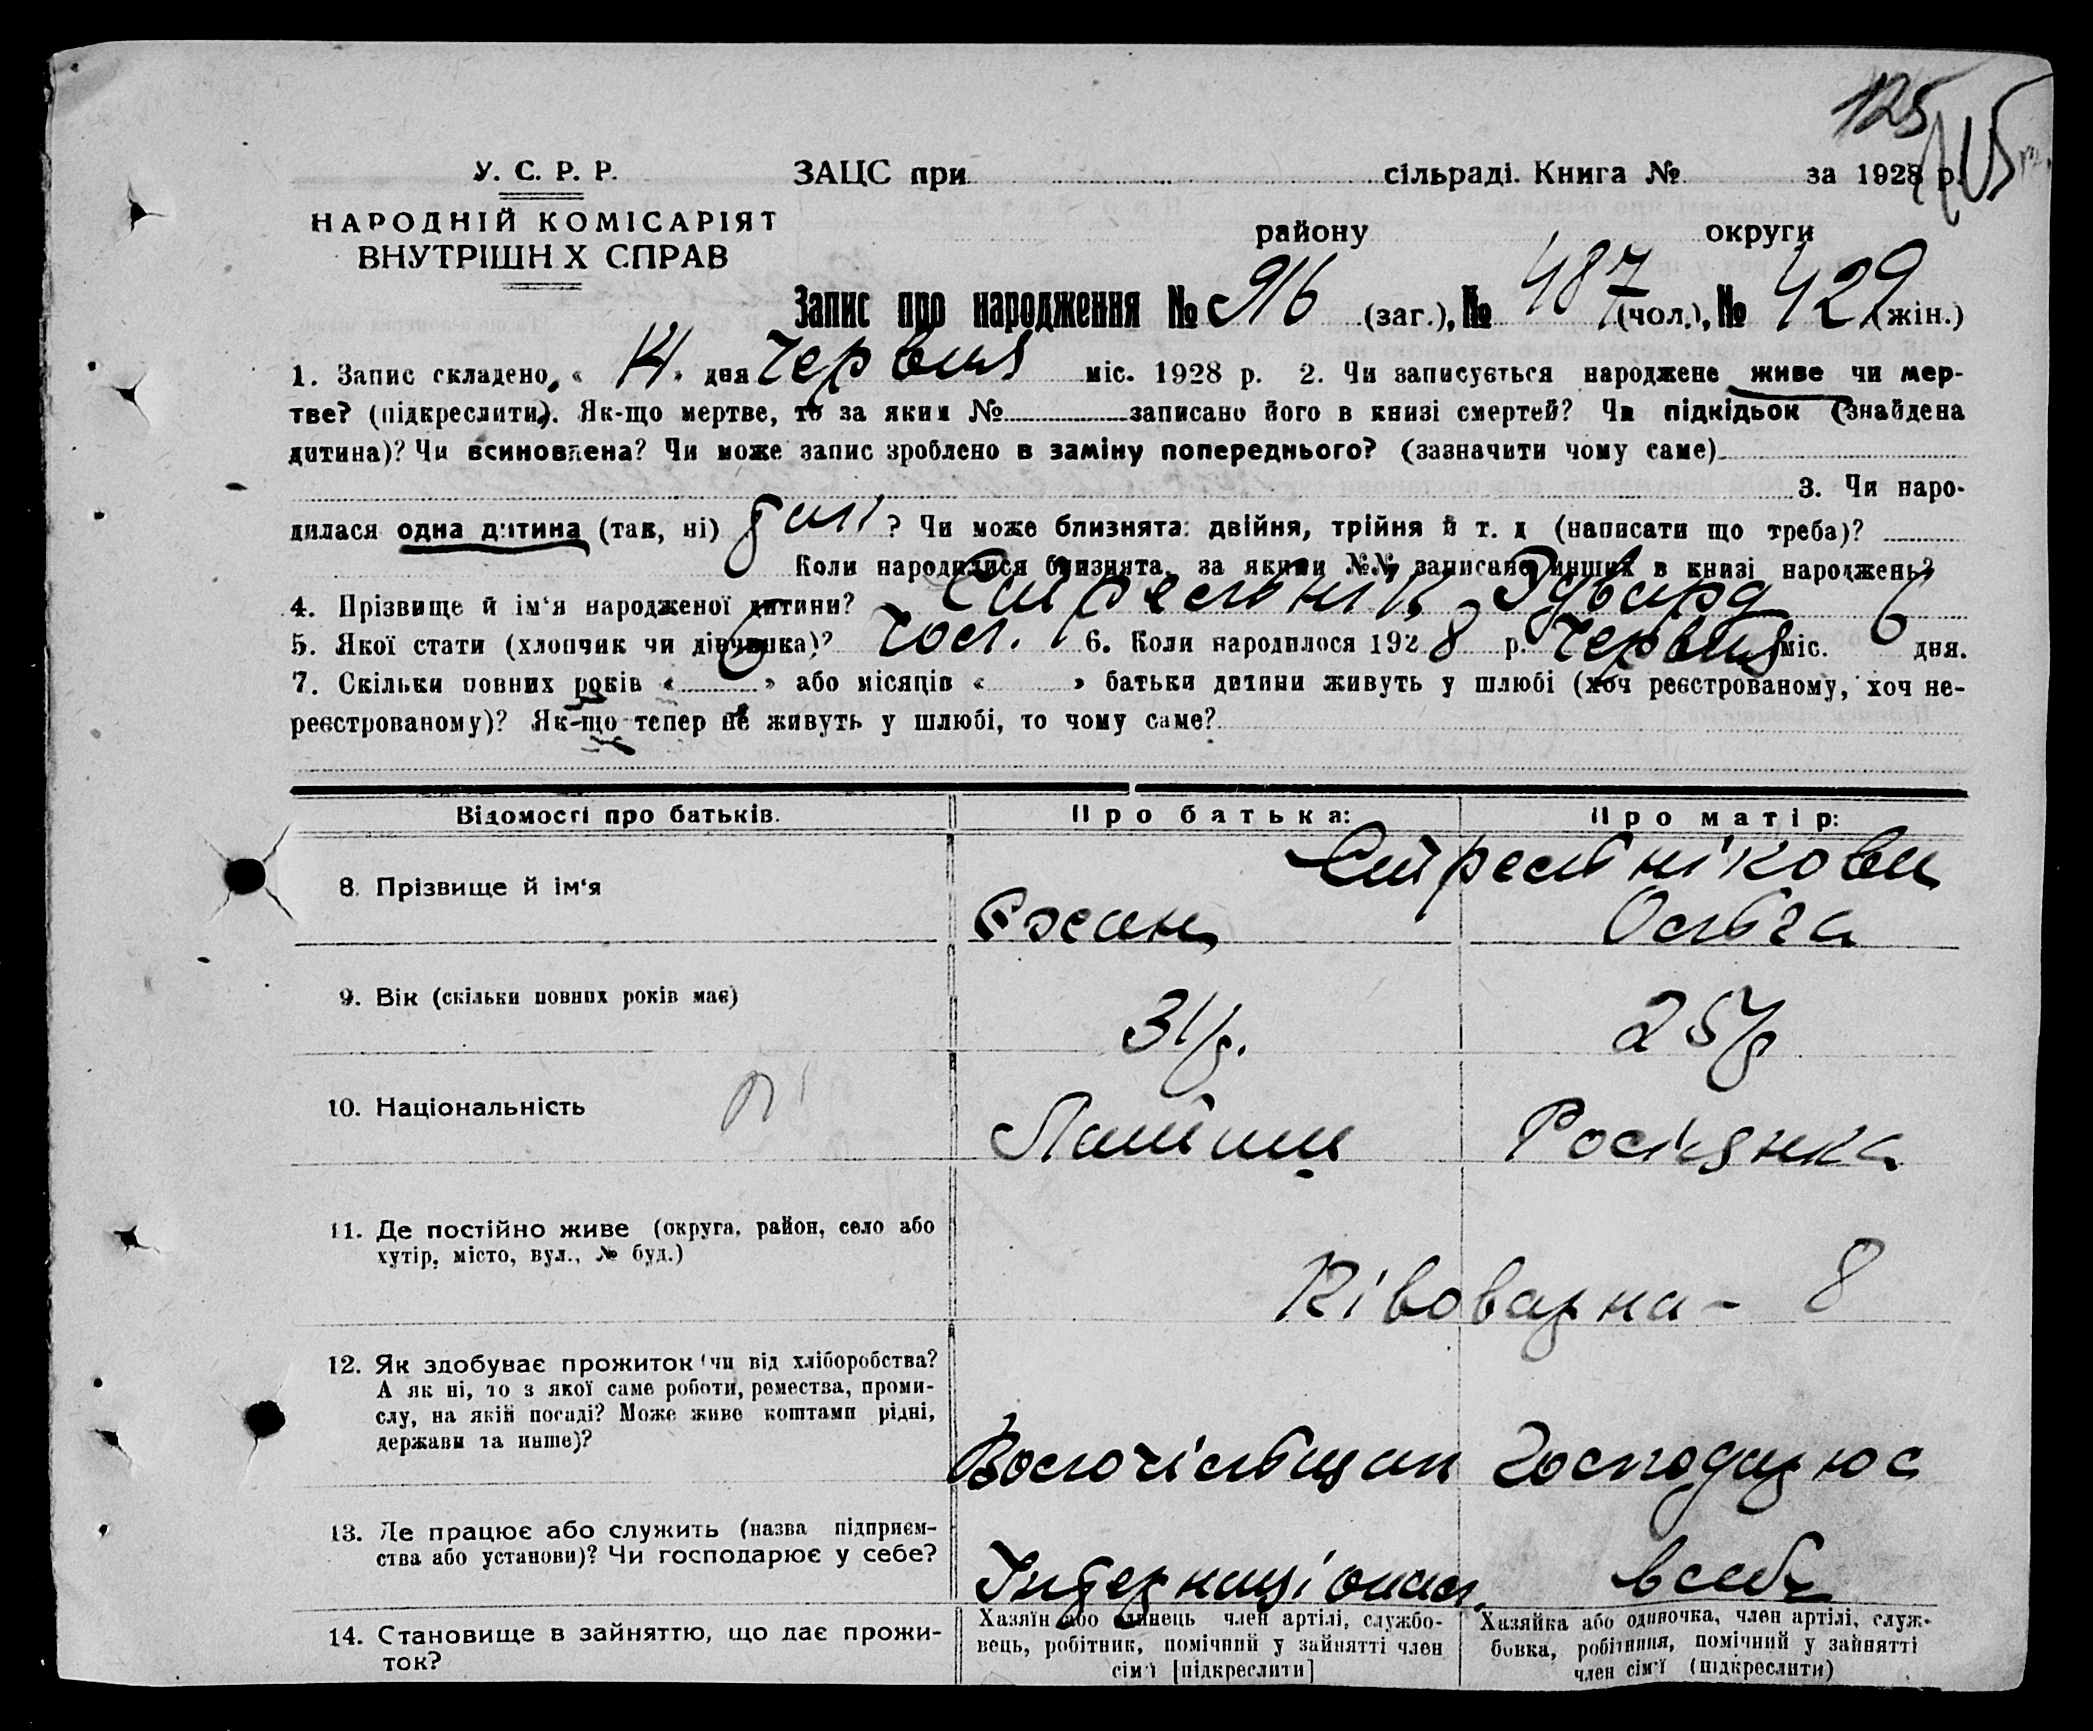 125
У. С. Р. Р.
ЗАЦС при сільраді. Книга № за 1928 р.
НАРОДНІЙ КОМІСАРІЯТ
ВНУТРІШН Х СПРАВ
району округи
Запис про народження № 916 (заг.), № 487 (чол.), № 429 (жін.)
1. Запис складено, « 14 » дня Червня міс. 1928 р. 2. Чи записується народжене живе чи мер-
тве? (підкреслити). Як-що мертве, то за яким № записано його в книзі смертей? Чи підкідьок (знайдена
дитина)? Чи всиновлена? Чи може запис зроблено в заміну попереднього? (зазначити чому саме)
3. Чи наро-
дилася одна дитина (так, ні) ? Чи може близнята: двійня, трійня й т. д (написати що треба)?
Коли народилися близнята, за якими №№ записано инших в книзі народжень?
4. Прізвище й ім‘я народженої дитини? Едвард
5. Якої стати (хлопчик чи дівчинка)? Чол. 6. Коли народилося 1928 р. Червня міс. 6 дня.
7. Скільки повних років « » або місяців « » батьки дитини живуть у шлюбі (хоч реєстрованому, хоч не-
реєстрованому)? Як-що тепер не живуть у шлюбі, то чому саме?
Відомості про батьків. Про батька: Про матір:
8. Прізвище й ім‘я
Ольга
9. Вік (скільки повних років має) 31 р. 25 р
10. Національність Латиш Росіянка
11. Де постійно живе (округа, район, село або
хутір, місто, вул., № буд.)
Півоварна - 8
12. Як здобуває прожиток (чи від хліборобства?
А як ні, то з якої саме роботи, ремества, проми-
слу, на якій посаді? Може живе коштами рідні,
держави та инше)?
Господарює
13. Де працює або служить (назва підприєм-
ства або установи)? Чи господарює у себе?
Інтернаціонал. в себе
14. Становище в зайняттю, що дає прожи-
ток?
Хазяїн або одинець член артілі, службо-
вець, робітник, помічний у зайнятті член
сім‘ї [підкреслити]
Хазяйка або одиночка, член артілі, служ-
бовка, робітниця, помічний у зайнятті
член сім‘ї (підкреслити)